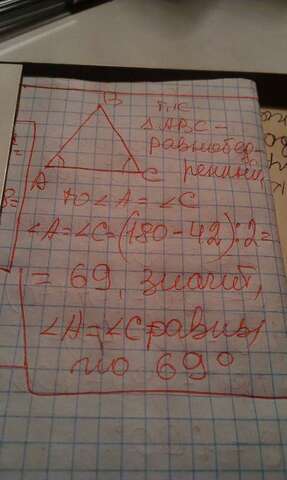 B
т.к
△ABC -
равнобед-
ренный,
A
C
то ∠A = ∠C
∠A=∠C=(180-42):2=
= 69, значит,
∠A=∠C равны
по 69°